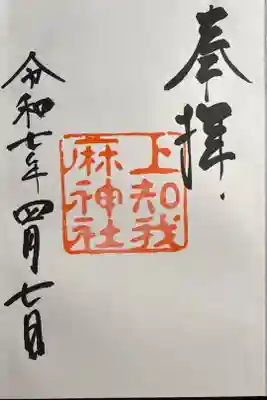 奉拝
上知我
麻神社
令和七年四月七日